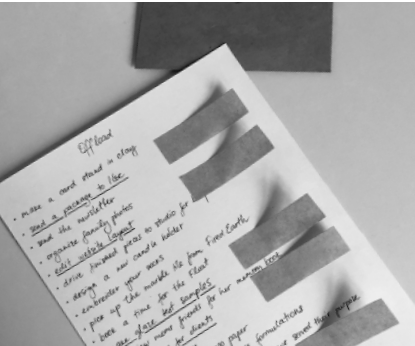 Offload
• make a card stand in clay
• send a package to
• send the newsletter
• organise family photos
• edit website layout
• drive finished pieces to studio for
• design a new candle holder
• embroider your
• pick up the marble tile from Fired Earth
• book a time for the float
glaze test samples
friends for her
for clients
paper
formulations
served their purpose